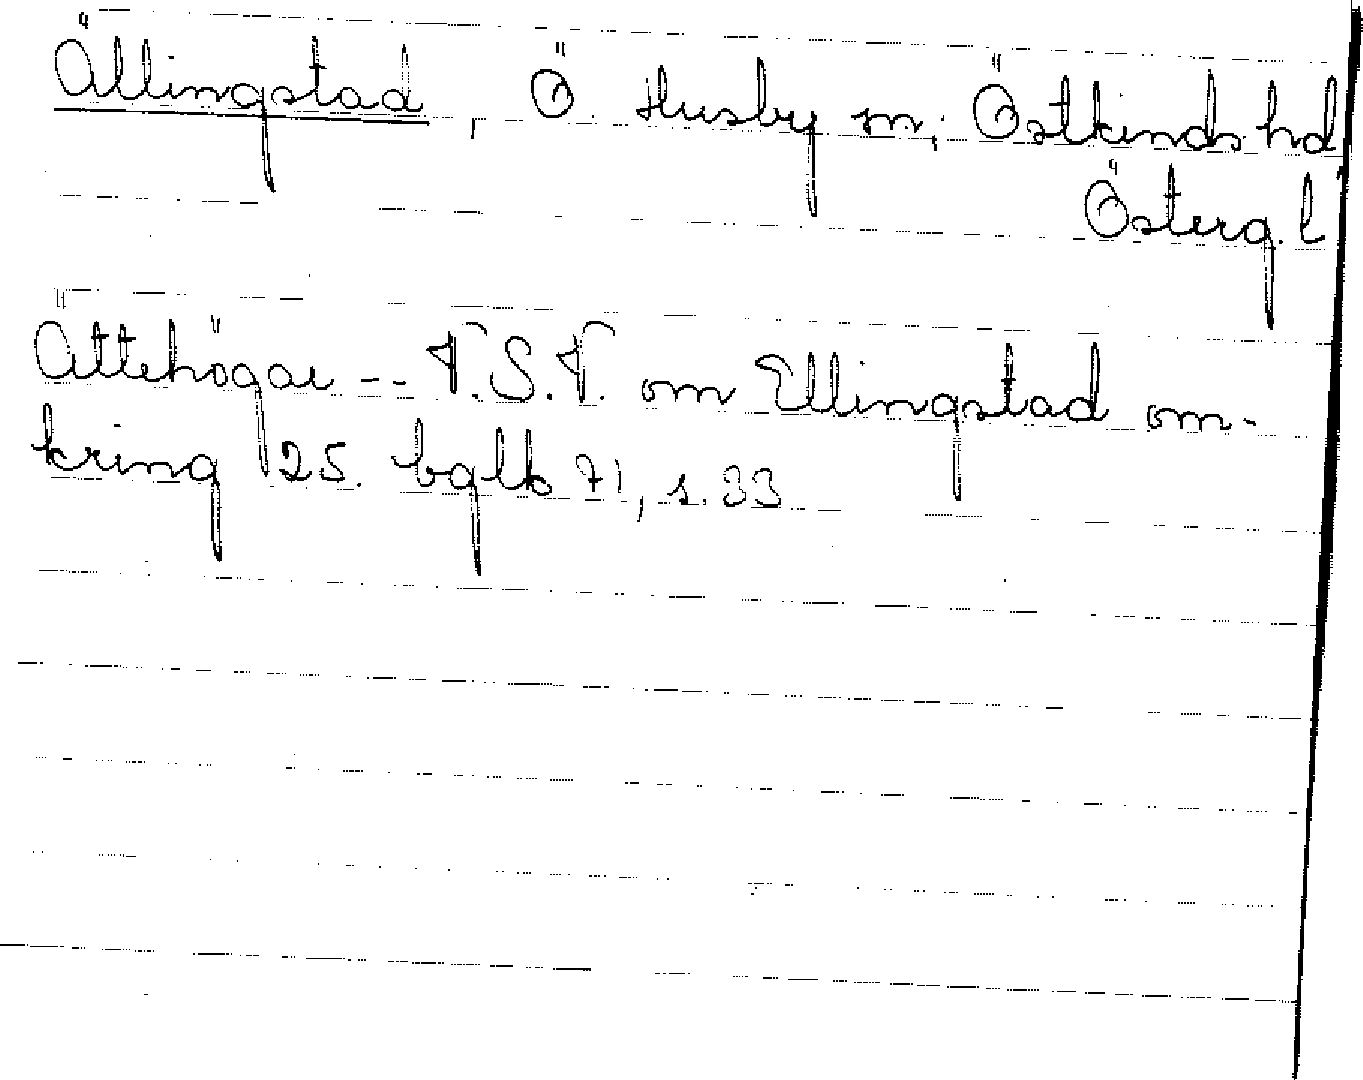 Ällingstad, Ö. Husby sn; Östkinds hd
Österg. l
Ättehögar -- V.S.V. om Ellingstad om-
kring 25. bglb 71, s. 33